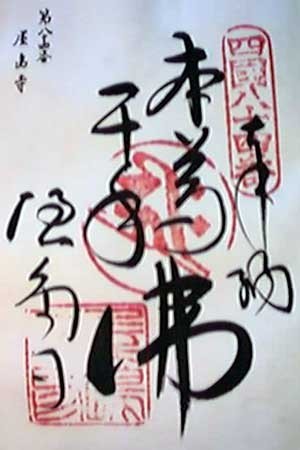 四國八十四番
奉納
本尊
千手
佛
屋島寺
第八十四番
屋島寺